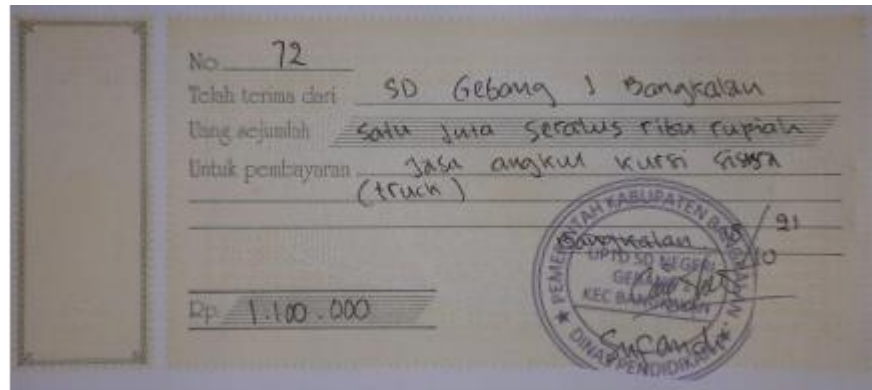 No. 72
Telah terima dari SD Gebang 1 Bangkalan
Uang sejumlah satu juta seratus ribu rupiah
Untuk pembayaran Jasa angkut kursi siswa
(truck)
Bangkalan 21
10
PEMERINTAH KABUPATEN BANGKALAN
UPTD SD NEGERI
KEC BANGKALAN
DINAS PENDIDIKAN
Rp. 1.100.000